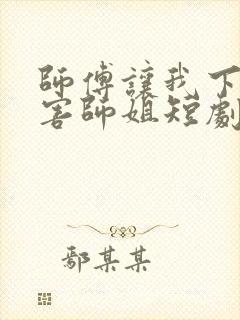 師傅讓我下
害師姐短劇
鄢某某